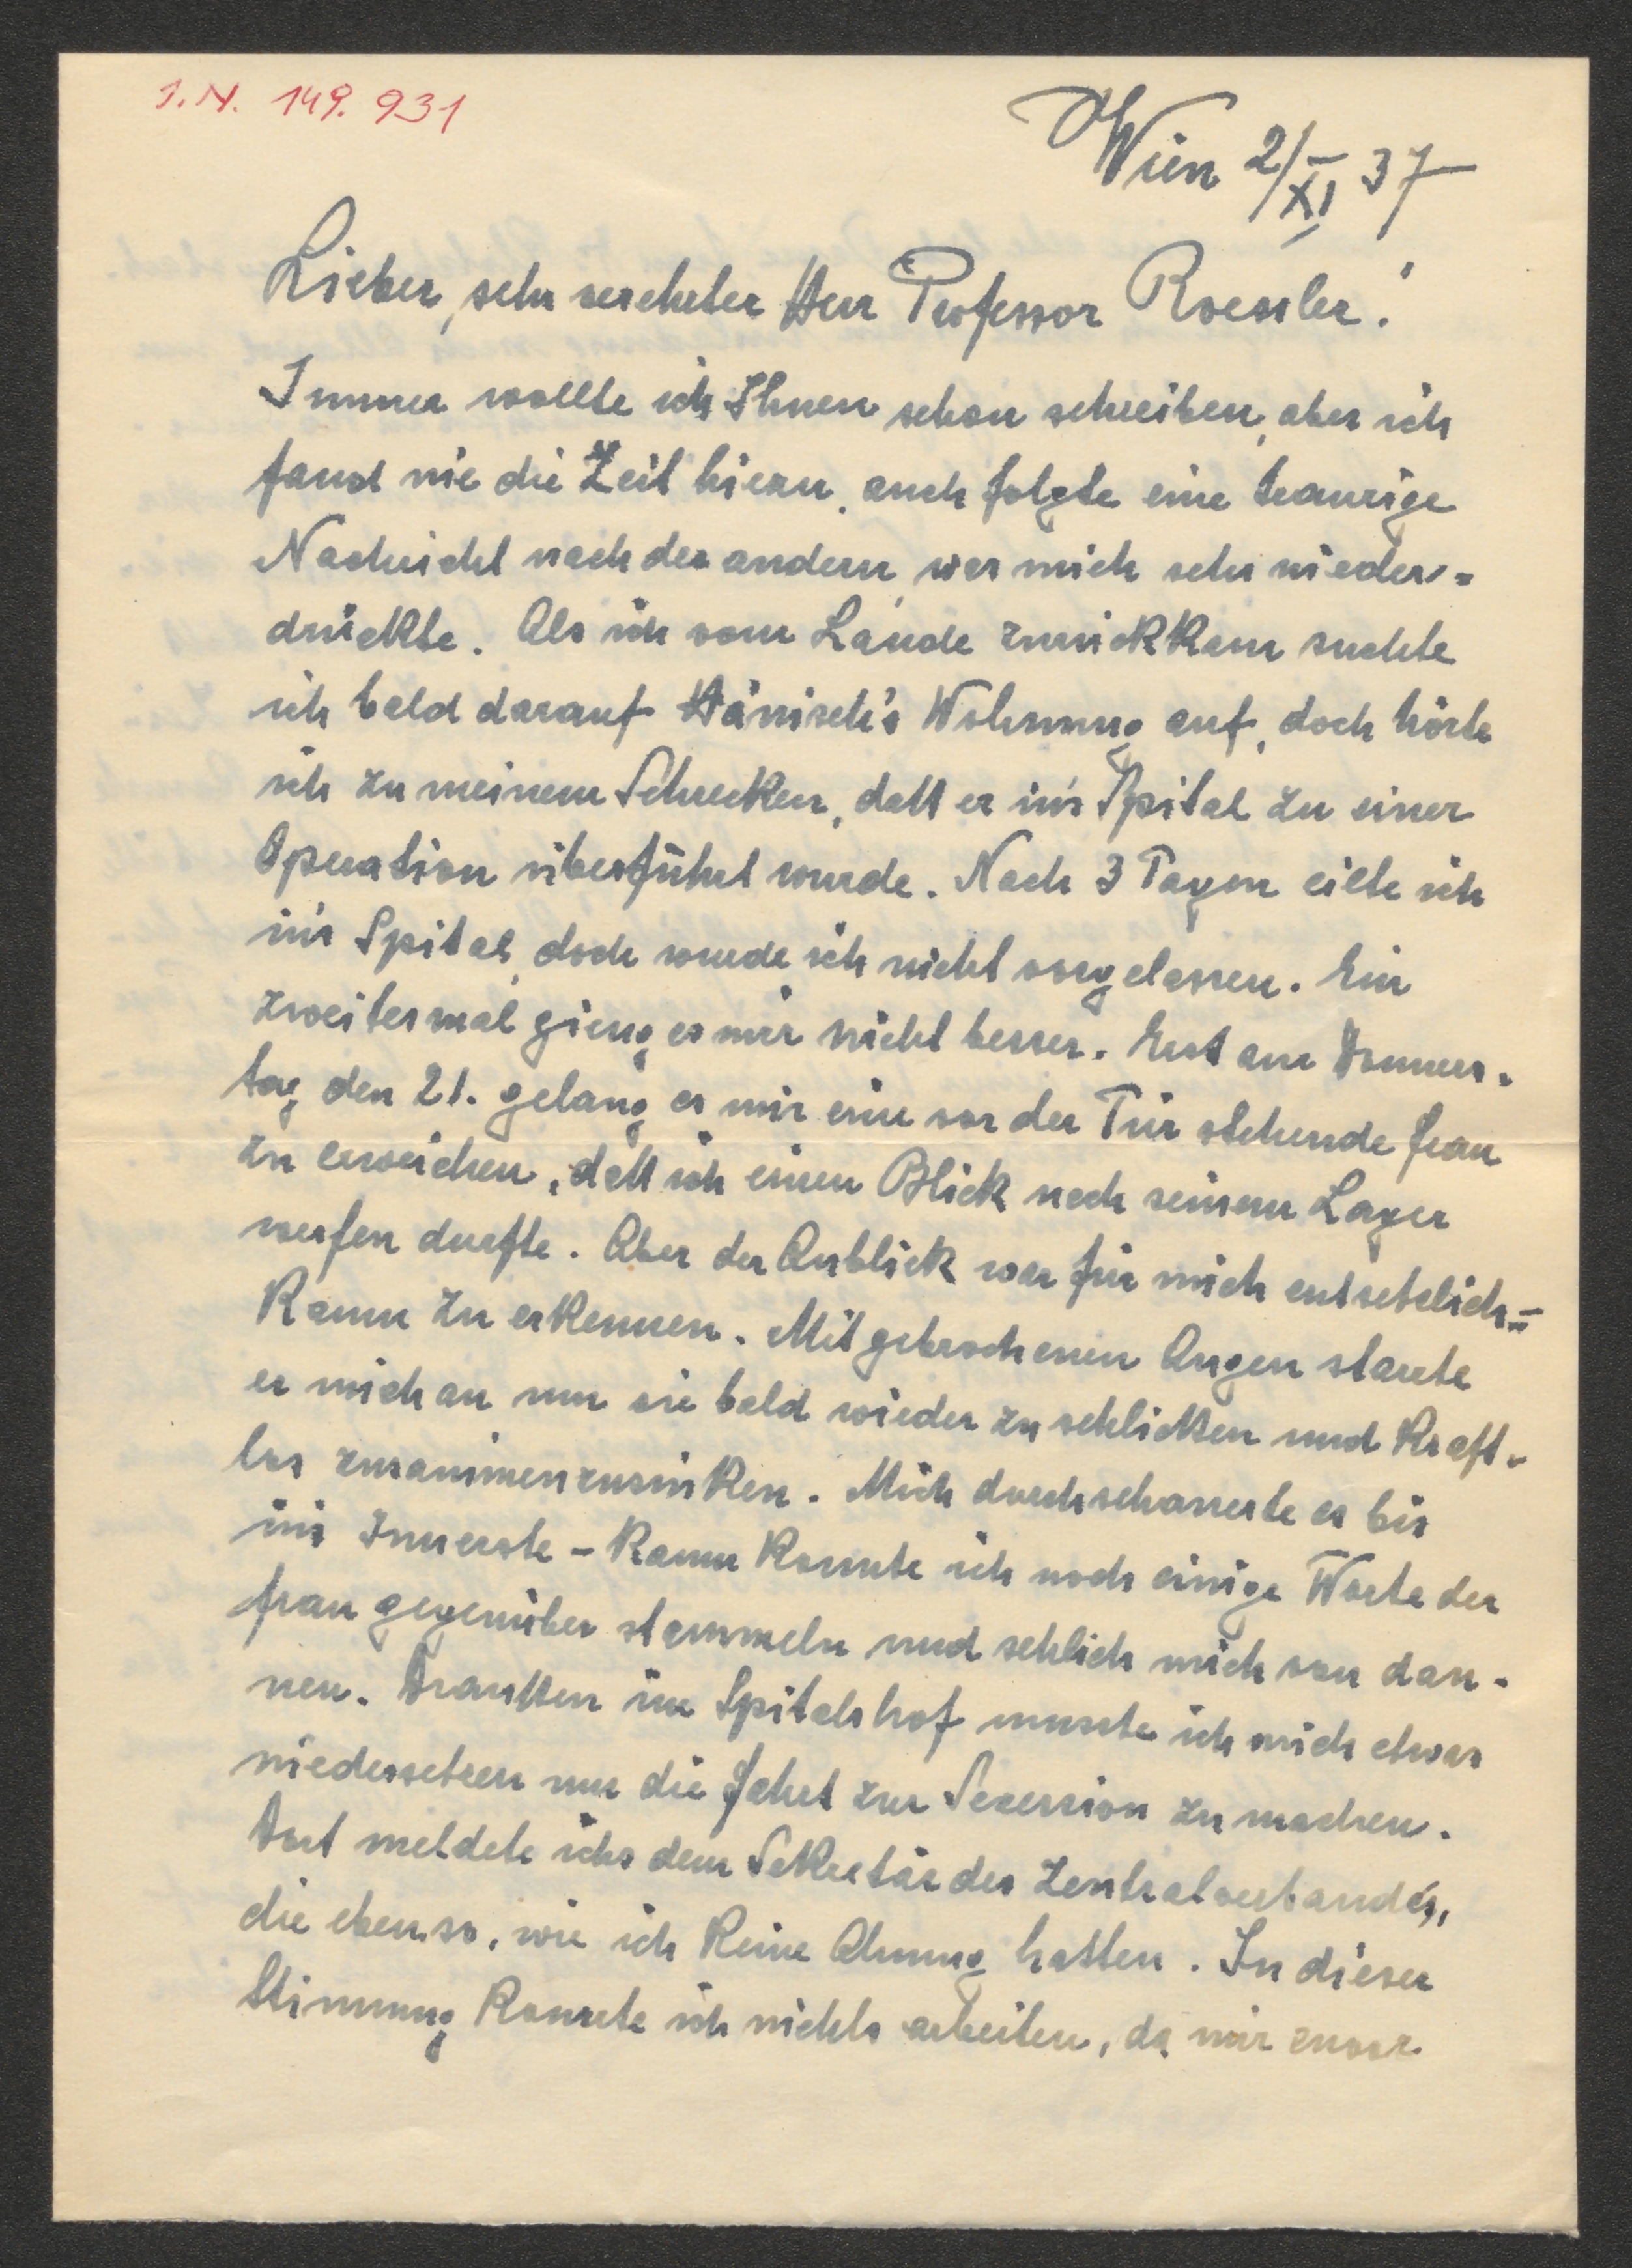 I.N. 149.931
Wien 2/XI 37
Lieber, sehr verehrter Herr Professor Roessler!
Immer wollte ich Ihnen schon schreiben, aber ich
fand nie die Zeit hiezu, auch folgte eine traurige
Nachricht nach der andern, was mich sehr nieder=
drückte. Als ich vom Lande zurückkam suchte
ich bald darauf Hänisch's Wohnung auf, doch hörte
ich zu meinem Schrecken, daß er in's Spital zu einer
Operation überführt wurde. Nach 3 Tagen eilte ich
in's Spital, doch wurde ich nicht vorgelassen. Ein
zweitesmal gieng es mir nicht besser. Erst am Donners-
tag den 21. gelang es mir eine vor der Tür stehende Frau
zu erweichen, daß ich einen Blick nach seinem Lager
werfen durfte. Aber der Anblick war für mich entsetzlich –
Kaum zu erkennen. Mit gebrochenen Augen starrte
er mich an um sie bald wieder zu schließen und kraft-
los zusammenzusinken. Mich durchschauerte es bis
in's Innerste – Kaum konnte ich noch einige Worte der
Frau gegenüber stammeln und schlich mich von dan-
nen. Draußen im Spitalshof musste ich mich etwas
niedersetzen um die Fahrt zur Secession zu machen.
Dort meldete ichs dem Sekretär des Zentralverbandes,
die ebenso, wie ich keine Ahnung hatten. In dieser
Stimmung konnte ich nichts arbeiten, da mir zuvor